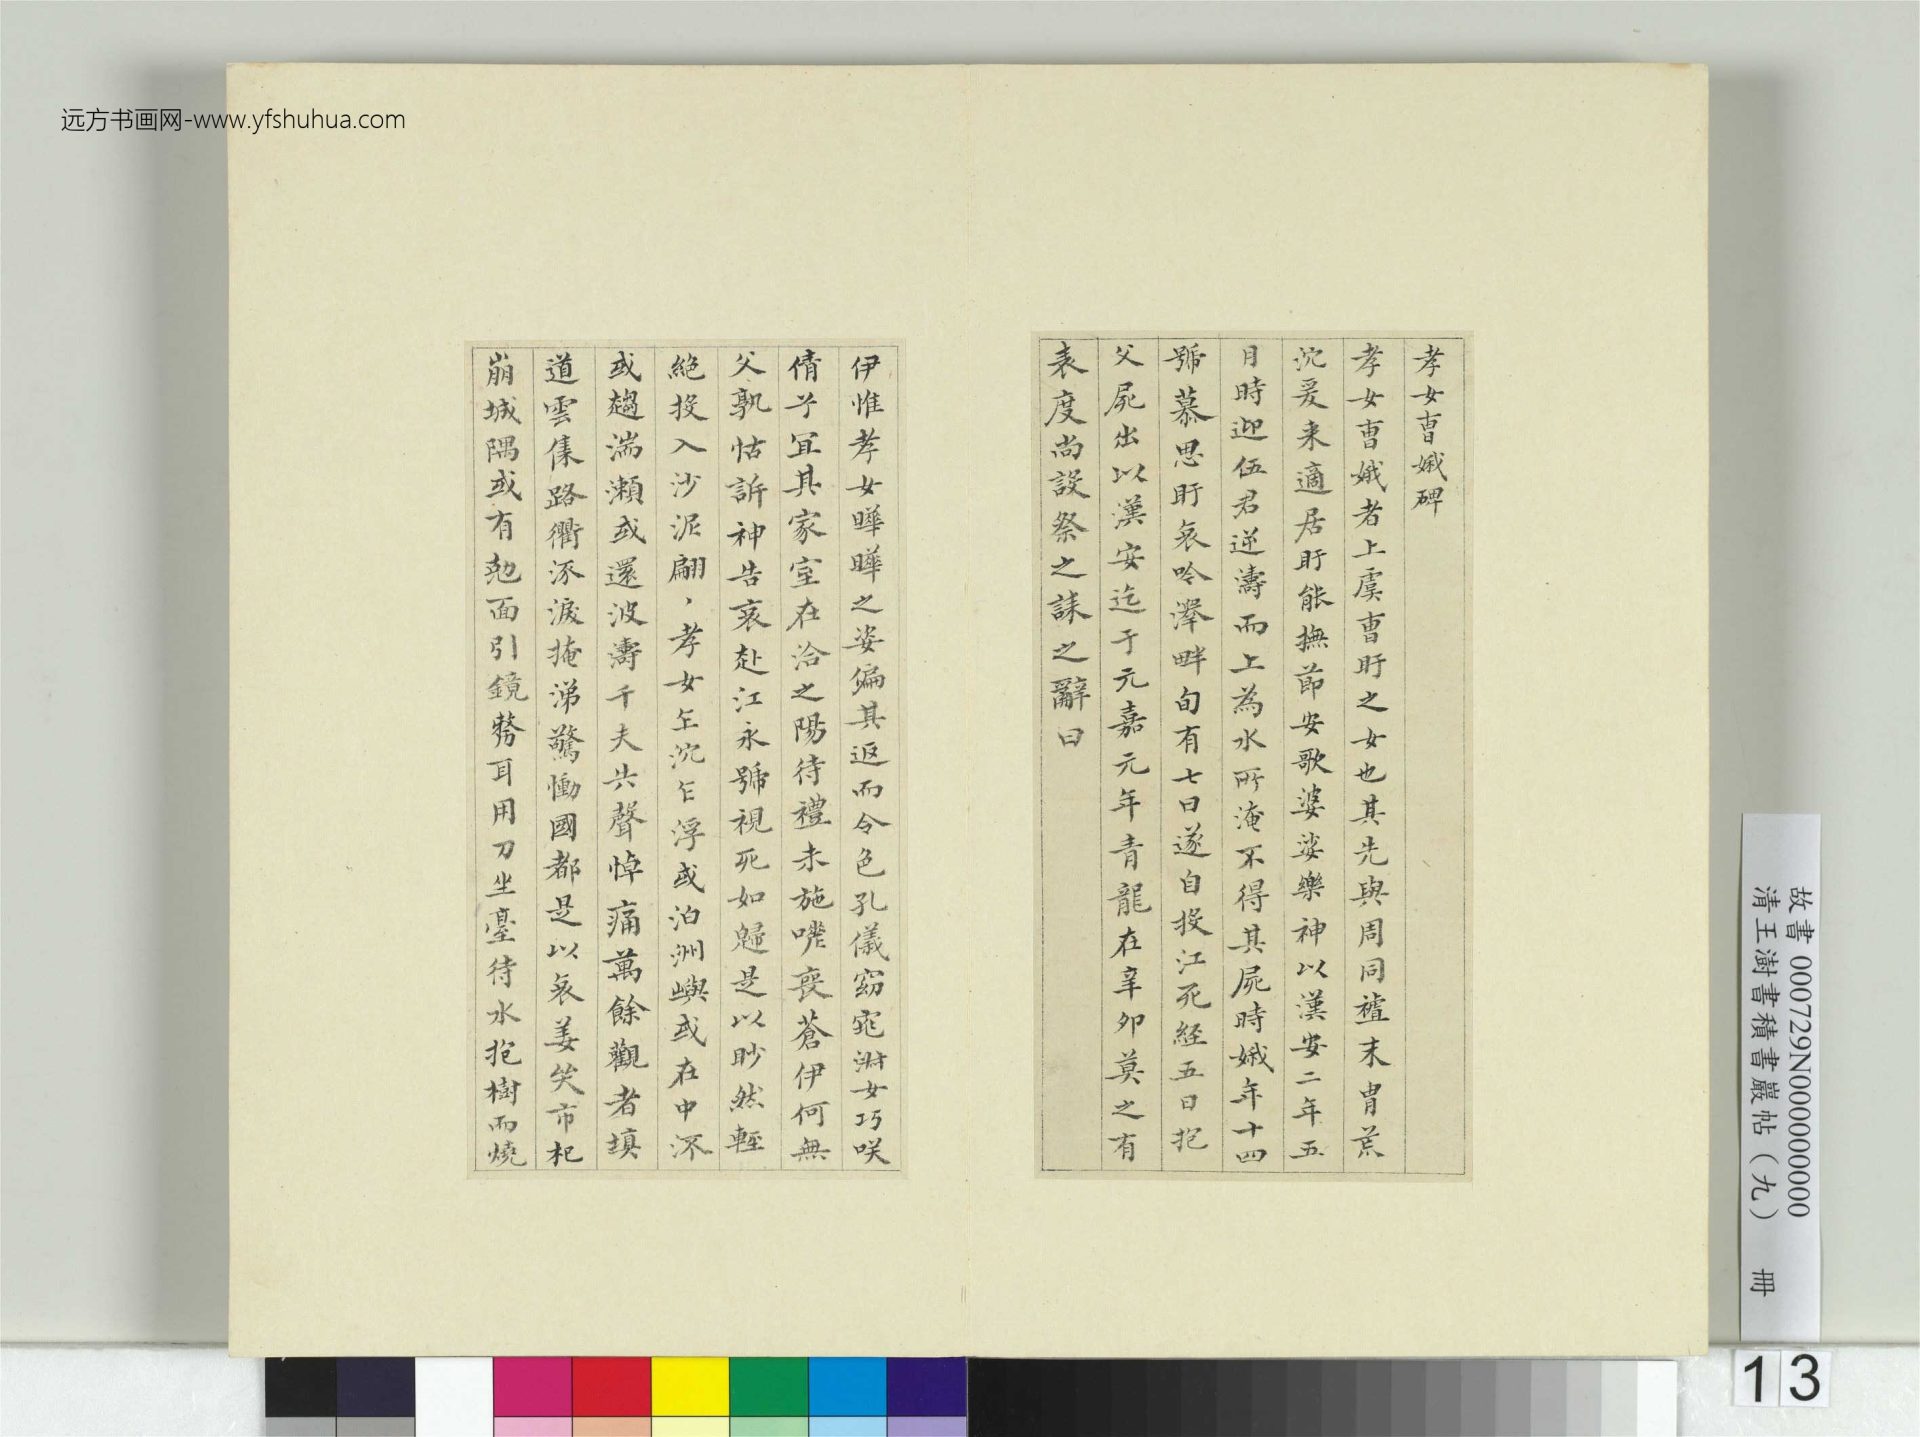 远方书画网-www.yfshuhua.com
孝女曺娥碑
孝女曺娥者上虞曺盱之女也其先與周同禮末胄荒
沉爰来適居盱能撫節安歌婆娑樂神以漢安二年五
月時迎伍君逆濤而上為水所淹不得其屍時娥年十四
號慕思盱哀吟澤畔旬有七日遂自投江死経五日抱
父屍出以漢安迄于元嘉元年青龍在辛卯莫之有
表度尚設祭之誄之辭曰
伊惟孝女曄曄之姿偏其返而令色孔儀窈窕淑女巧咲
倩兮宜其家室在洽之陽待禮未施嗟喪蒼伊何無
父孰怙訴神告哀赴江永號視死如歸是以眇然輕
絶投入沙泥翩、孝女乍沉乍浮或泊洲嶼或在中流
或趨湍瀬或還波濤千夫共聲悼痛萬餘觀者填
道雲集路衢流淚掩涕驚慟國都是以哀姜哭市杞
崩城隅或有尅面引鏡剺耳用刀坐臺待水抱樹而燒
故書 000729N000000000
清王澍書積書巖帖（九） 冊
13